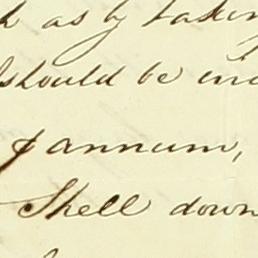 as by taking
should be in
⅌ annum,
Shell down